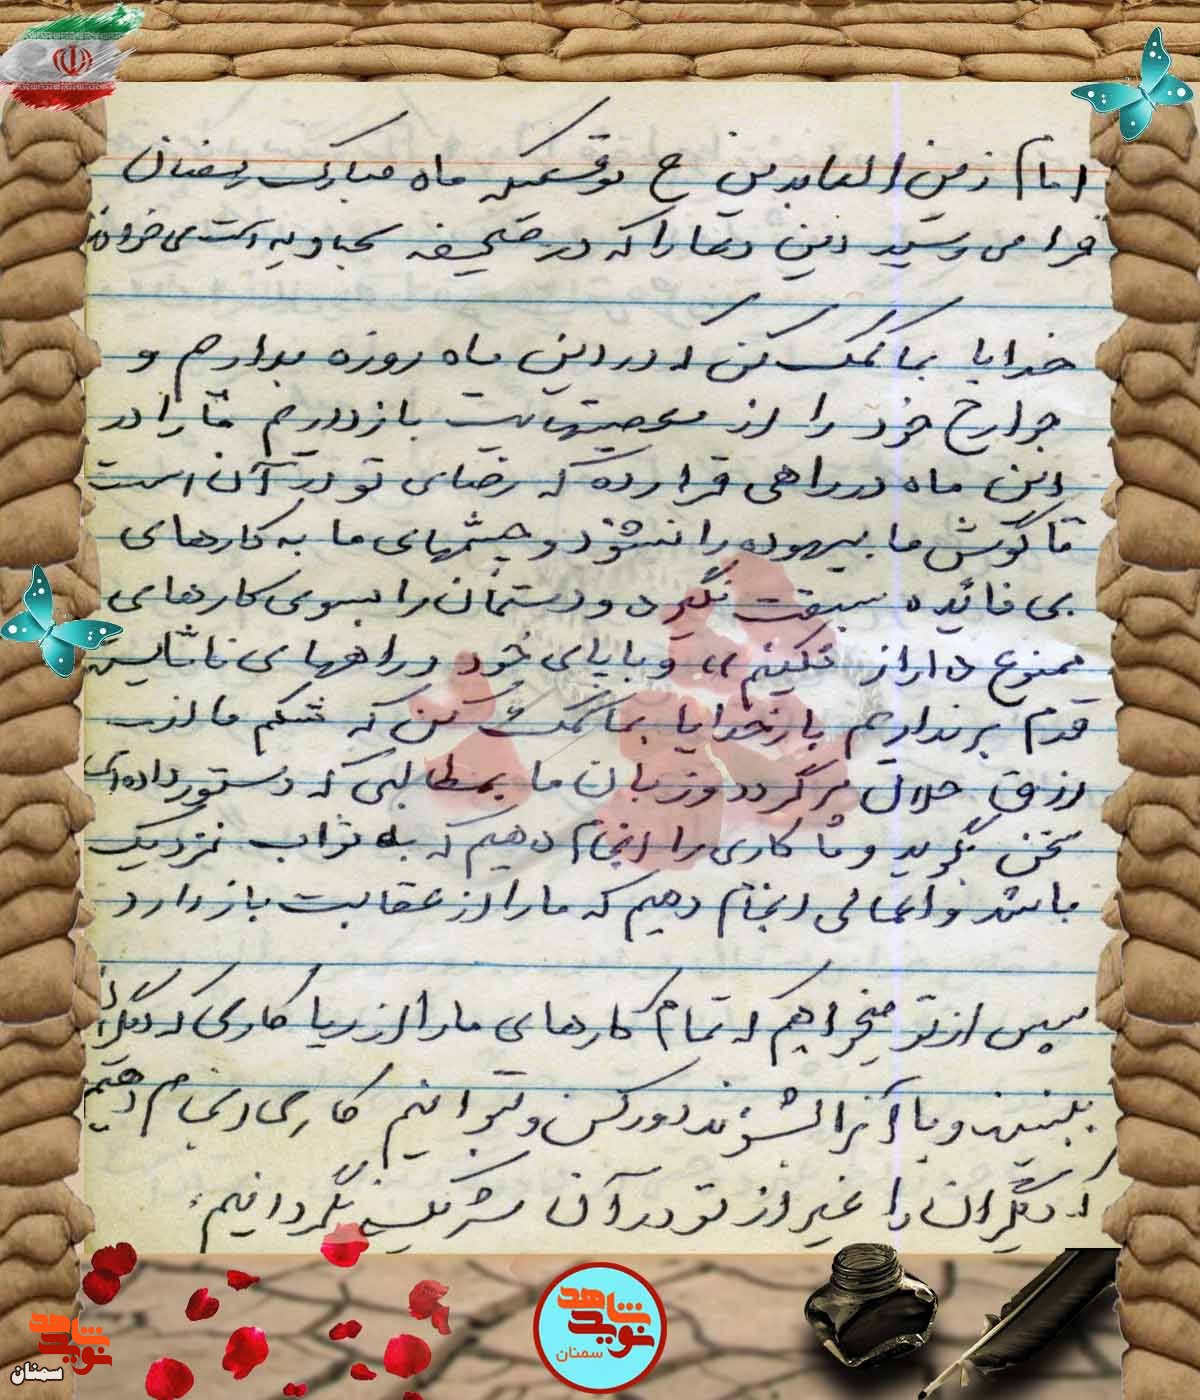 امام زین العابدین ع موقعیکه ماه مبارک رمضان
فرا می رسید این دعا را که در صحیفه سجادیه است می خواندند
خدایا بما کمک کن که در این ماه روزه بداریم و
جوارح خود را از معصیتهایت بازداریم ما را در
این ماه در راهی قرار ده که رضای تو در آن است
تا گوش ما بیهوده را نشنود و چشمهای ما به کارهای
بی فائده سبقت نگیرد و دستمان را بسوی کارهای
ممنوع دراز نکنیم و با پای خود در راههای ناشایست
قدم برنداریم بارخدایا بما کمک کن که شکم ما از
رزق حلال پر گردد و زبان ما بمطالبی که دستور داده‌ای
سخن بگوید و ما کاری را انجام دهیم که به ثواب نزدیک
باشد و اعمالی انجام دهیم که ما را از عقابت بازدارد
سپس از تو میخواهیم که تمام کارهای ما را از ریا کاری که دیگران
ببینند و یا آنرا بشنوند دور کن و نتوانیم کاری انجام دهیم
که دیگران را غیر از تو در آن شریک نگردانیم.
نوید شاهد
سمنان
نوید شاهد
سمنان